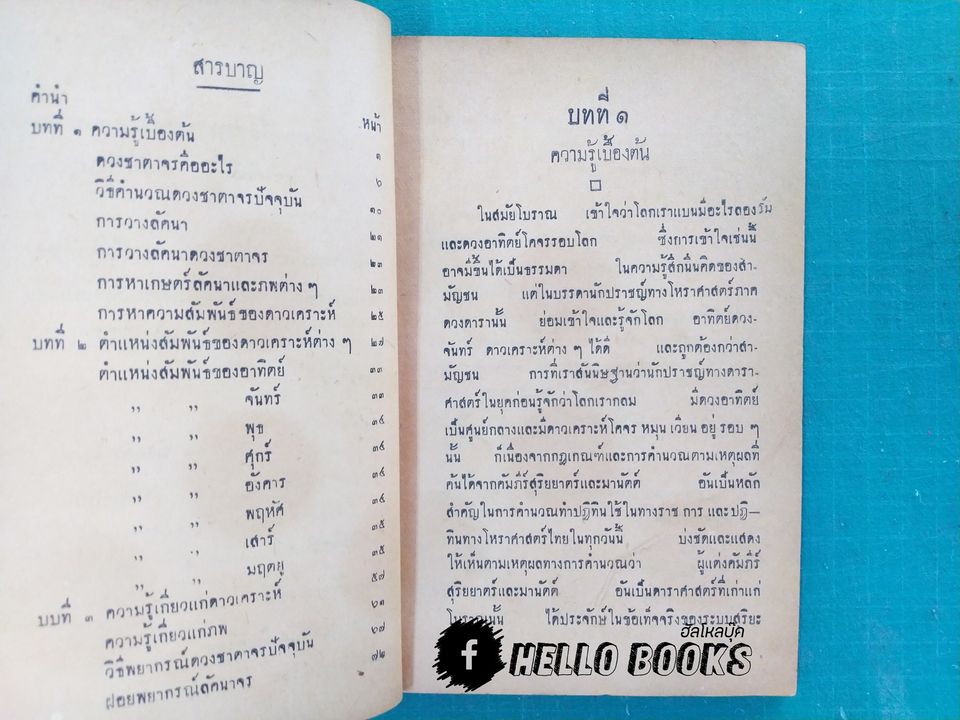 สารบาญ
คำนำ
หน้า
บทที่ ๑ ความรู้เบื้องต้น ๑
ดวงชาตาจรคืออะไร ๖
วิธีคำนวณดวงชาตาจรปัจจุบัน ๑๐
การวางลัคนา ๒๑
การวางลัคนาดวงชาตาจร ๒๓
การหาเกษตร์ลัคนาและภพต่าง ๆ ๒๓
การหาความสัมพันธ์ของดาวเคราะห์ ๒๕
บทที่ ๒ ตำแหน่งสัมพันธ์ของดาวเคราะห์ต่าง ๆ ๒๗
ตำแหน่งสัมพันธ์ของอาทิตย์ ๓๓
,, ,, จันทร์ ๓๓
,, ,, พุธ ๓๔
,, ,, ศุกร์ ๓๔
,, ,, อังคาร ๓๔
,, ,, พฤหัศ ๓๕
,, ,, เสาร์ ๓๕
,, ,, มฤตยู ๓๕
บบที่ ๓ ความรู้เกี่ยวแก่ดาวเคราะห์ ๕๗
ความรู้เกี่ยวแก่ภพ ๖๑
วิธีพยากรณ์ดวงชาตาจรปัจจุบัน ๖๗
ฝอยพยากรณ์ลัคนาจร ๗๒
บทที่ ๑
ความรู้เบื้องต้น
ในสมัยโบราณ เข้าใจว่าโลกเราแบนมีอะไรลองรับ
และดวงอาทิตย์โคจรรอบโลก ซึ่งการเข้าใจเช่นนี้
อาจมีขึ้นได้เป็นธรรมดา ในความรู้สึกนึกคิดของสา-
มัญชน แต่ในบรรดานักปราชญ์ทางโหราศาสตร์ภาค
ดวงดารานั้น ย่อมเข้าใจและรู้จักโลก อาทิตย์ดวง-
จันทร์ ดาวเคราะห์ต่าง ๆ ได้ดี และถูกต้องกว่าสา-
มัญชน การที่เราสันนิษฐานว่านักปราชญ์ทางดารา-
ศาสตร์ในยุคก่อนรู้จักว่าโลกเรากลม มีดวงอาทิตย์
เป็นศูนย์กลางและมีดาวเคราะห์โคจร หมุน เวียน อยู่ รอบ ๆ
นั้น ก็เนื่องจากกฎเกณฑ์และการคำนวณตามเหตุผลที่
ค้นได้จากคัมภีร์สุริยยาตร์และมานัตต์ อันเป็นหลัก
สำคัญในการคำนวณทำปฏิทินใช้ในทางราช การ และปฏิ-
ทินทางโหราศาสตร์ไทยในทุกวันนี้ บ่งชัดและแสดง
ให้เห็นตามเหตุผลทางการคำนวณว่า ผู้แต่งคัมภีร์
สุริยยาตร์และมานัตต์ อันเป็นดาราศาสตร์ที่เก่าแก่
โบราณนั้น ได้ประจักษ์ในข้อเท็จจริงของระบบสุริยะ
ฮัลโหลบุ๊ค
f HELLO BOOKS